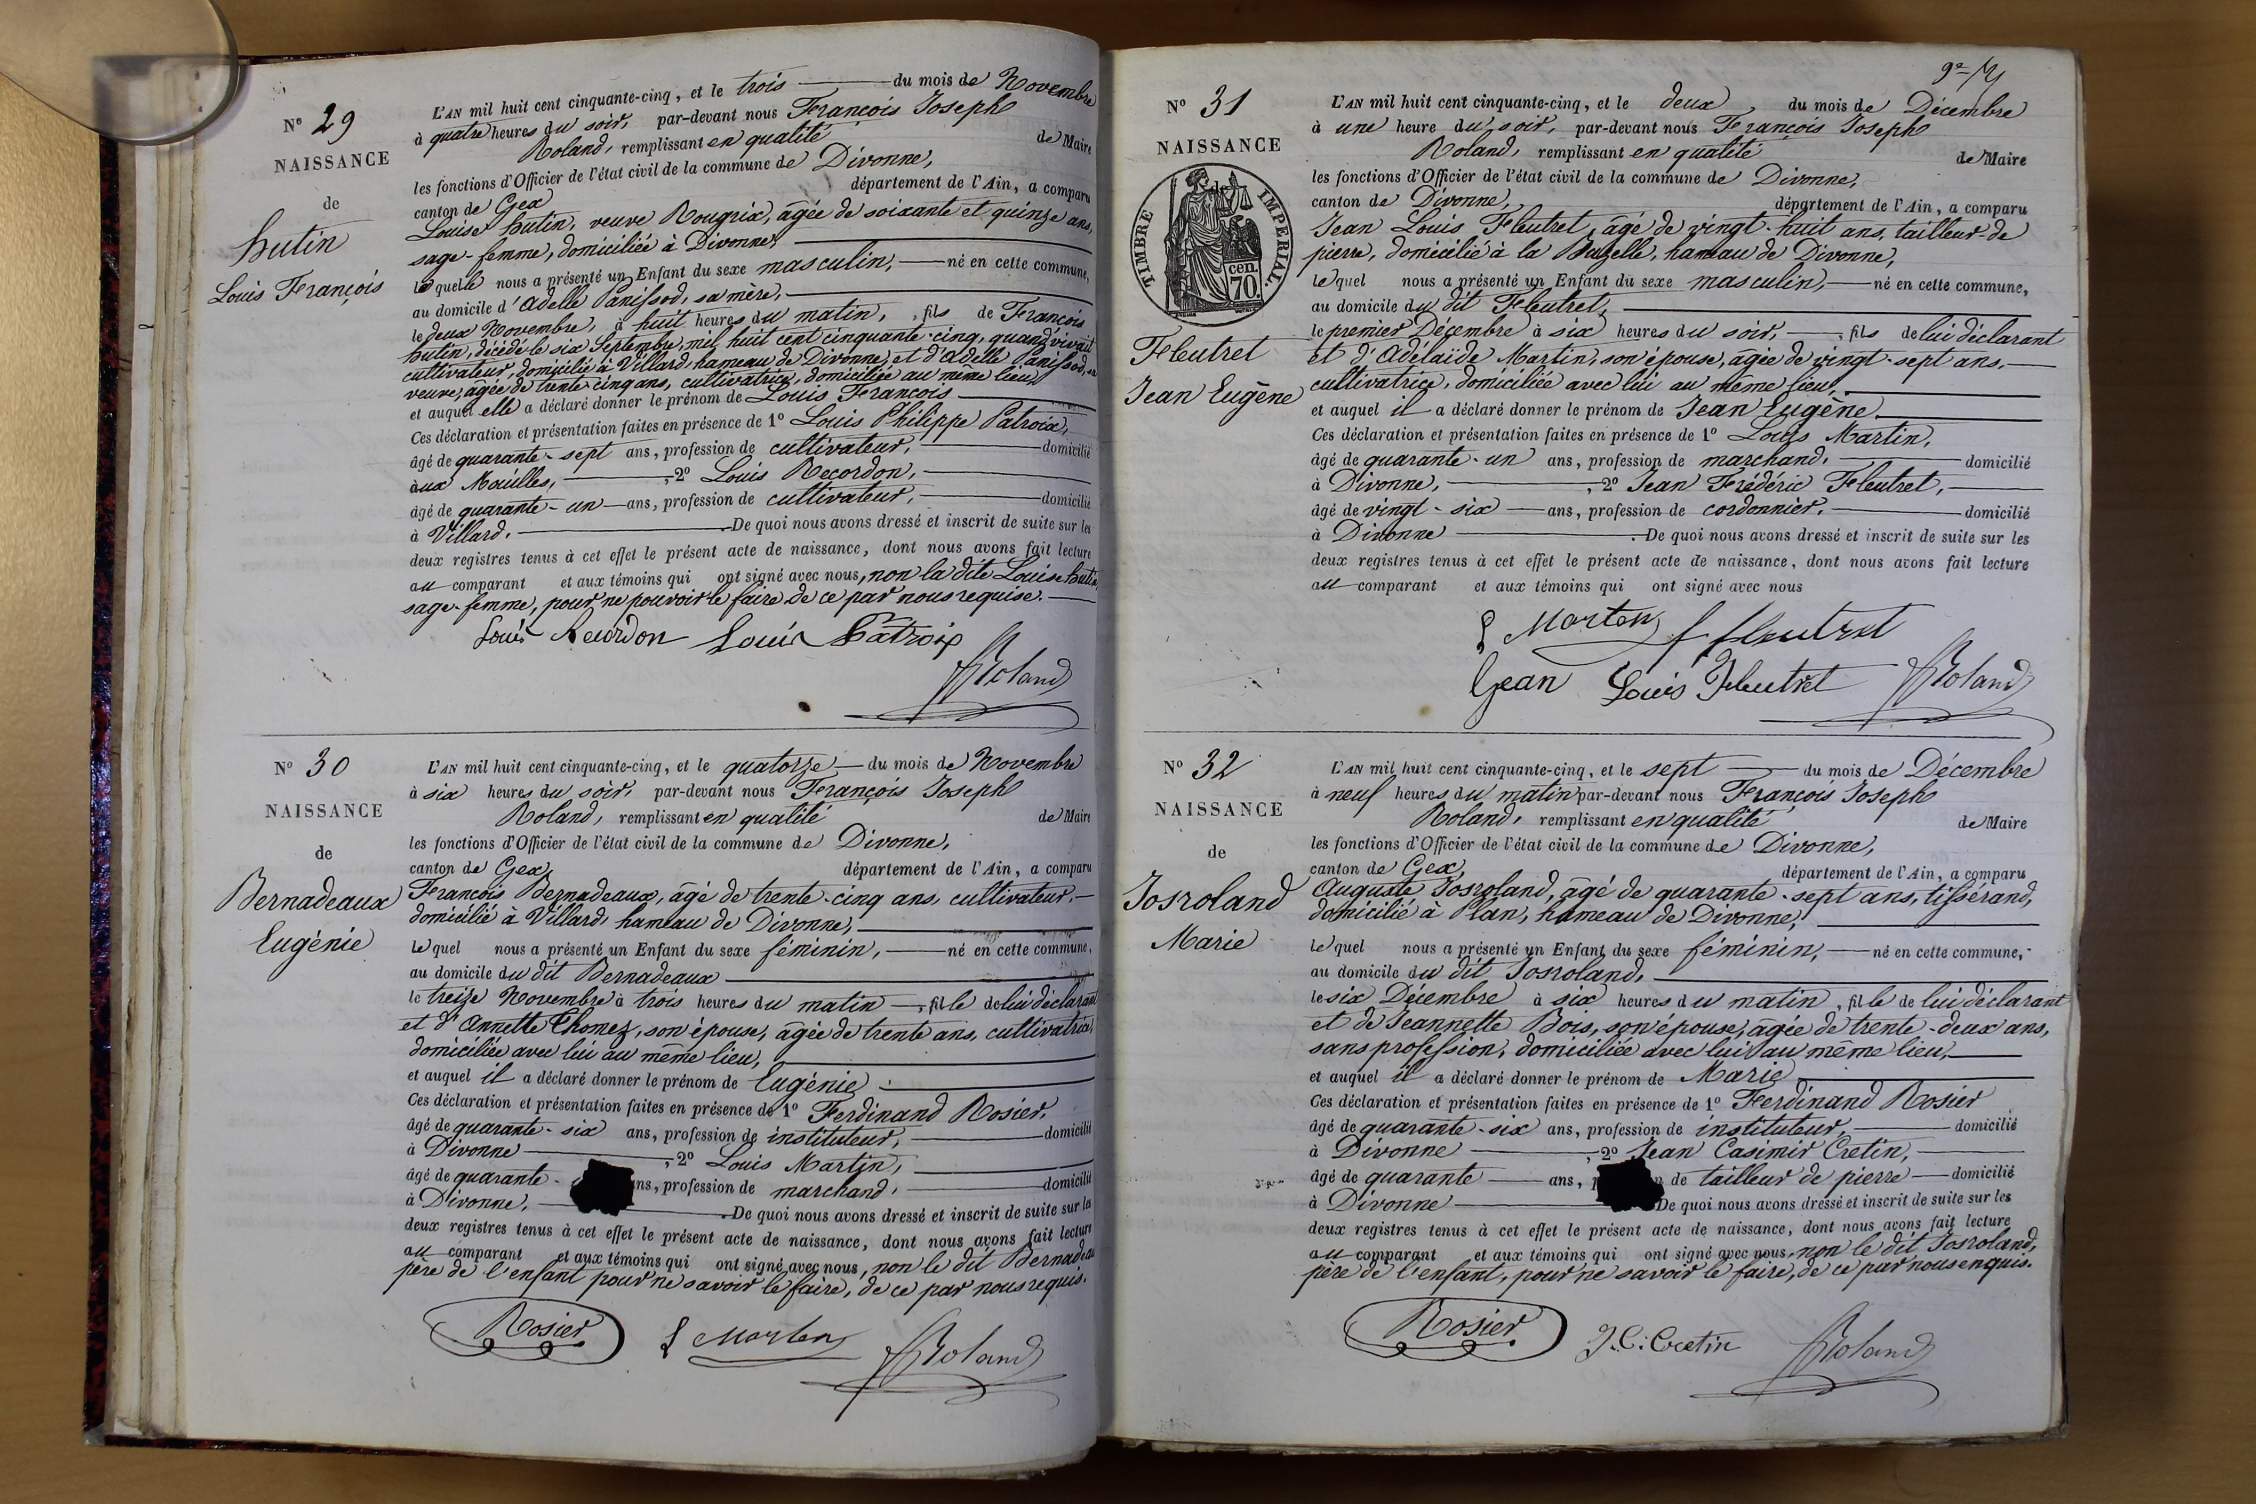 N° 29
NAISSANCE
de
hutin
Louis François
L'AN mil huit cent cinquante-cinq, et le trois du mois de Novembre
à quatre heures du soir, par-devant nous François Joseph
Roland, remplissant en qualité de Maire
les fonctions d'Officier de l'état civil de la commune de Divonne,
canton de Gex département de l'Ain, a comparu
Louise hutin, veuve Rougrix, âgée de soixante et quinze ans,
sage-femme, domiciliée à Divonne,
laquelle nous a présenté un Enfant du sexe masculin, né en cette commune,
au domicile d'Adelle Panissod, sa mère,
le deux Novembre, à huit heures du matin, fils de François
hutin, décédé le six Septembre, mil huit cent cinquante-cinq, quand vivait
cultivateur, domicilié à Villard, hameau de Divonne, et d'Adelle Panissod, sa
veuve, âgée de trente-cinq ans, cultivatrice, domiciliée au même lieu,
et auquel elle a déclaré donner le prénom de Louis François
Ces déclaration et présentation faites en présence de 1° Louis Philippe Patroix,
âgé de quarante-sept ans, profession de cultivateur, domicilié
aux Mouilles, 2° Louis Recordon,
âgé de quarante-un ans, profession de cultivateur, domicilié
à Villard. De quoi nous avons dressé et inscrit de suite sur les
deux registres tenus à cet effet le présent acte de naissance, dont nous avons fait lecture
au comparant et aux témoins qui ont signé avec nous, non la dite Louise hutin,
sage-femme, pour ne pouvoir le faire de ce par nous requise.
Louis Recordon Louis Patroix
Roland
N° 30
NAISSANCE
de
Bernadeaux
Eugénie
L'AN mil huit cent cinquante-cinq, et le quatorze du mois de Novembre
à six heures du soir, par-devant nous François Joseph
Roland, remplissant en qualité de Maire
les fonctions d'Officier de l'état civil de la commune de Divonne,
canton de Gex département de l'Ain, a comparu
François Bernadeaux, âgé de trente-cinq ans, cultivateur,
domicilié à Villard, hameau de Divonne,
lequel nous a présenté un Enfant du sexe féminin, né en cette commune,
au domicile du dit Bernadeaux
le treize Novembre à trois heures du matin, fille de lui déclarant
et d'Annette Thomez, son épouse, âgée de trente ans, cultivatrice,
domiciliée avec lui au même lieu,
et auquel il a déclaré donner le prénom de Eugénie
Ces déclaration et présentation faites en présence de 1° Ferdinand Rosier,
âgé de quarante-six ans, profession de instituteur, domicilié
à Divonne, 2° Louis Martin,
âgé de quarante- ns, profession de marchand, domicilié
à Divonne, De quoi nous avons dressé et inscrit de suite sur les
deux registres tenus à cet effet le présent acte de naissance, dont nous avons fait lecture
au comparant et aux témoins qui ont signé avec nous, non le dit Bernadeaux
père de l'enfant pour ne savoir le faire, de ce par nous requis.
Rosier L Marten Roland
9e
N° 31
NAISSANCE
de
TIMBRE IMPERIAL.
cen. 70.
Fleutret
Jean Eugène
L'AN mil huit cent cinquante-cinq, et le deux du mois de Décembre
à une heure du soir, par-devant nous François Joseph
Roland, remplissant en qualité de Maire
les fonctions d'Officier de l'état civil de la commune de Divonne,
canton de Divonne, département de l'Ain, a comparu
Jean Louis Fleutret, âgé de vingt-huit ans, tailleur de
pierre, domicilié à la hameau de Divonne,
lequel nous a présenté un Enfant du sexe masculin, né en cette commune,
au domicile du dit Fleutret,
le premier Décembre à six heures du soir, fils de lui déclarant
et d'Adélaide Martin, son épouse, âgée de vingt-sept ans,
cultivatrice, domiciliée avec lui au même lieu,
et auquel il a déclaré donner le prénom de Jean Eugène
Ces déclaration et présentation faites en présence de 1° Louis Martin,
âgé de quarante-un ans, profession de marchand, domicilié
à Divonne, 2° Jean Frédéric Fleutret,
âgé de vingt-six ans, profession de cordonnier, domicilié
à Divonne De quoi nous avons dressé et inscrit de suite sur les
deux registres tenus à cet effet le présent acte de naissance, dont nous avons fait lecture
au comparant et aux témoins qui ont signé avec nous
L Marten f fleutret
Jean Louis Fleutret Roland
N° 32
NAISSANCE
de
Josroland
Marie
L'AN mil huit cent cinquante-cinq, et le sept du mois de Décembre
à neuf heures du matin par-devant nous François Joseph
Roland, remplissant en qualité de Maire
les fonctions d'Officier de l'état civil de la commune de Divonne,
canton de Gex, département de l'Ain, a comparu
Auguste Josroland, âgé de quarante-sept ans, tissérand,
domicilié à Plan, hameau de Divonne,
lequel nous a présenté un Enfant du sexe féminin, né en cette commune,
au domicile du dit Josroland,
le six Décembre à six heures du matin, fille de lui déclarant
et de Jeannette Bois, son épouse, âgée de trente-deux ans,
sans profession, domiciliée avec lui au même lieu,
et auquel il a déclaré donner le prénom de Marie
Ces déclaration et présentation faites en présence de 1° Ferdinand Rosier
âgé de quarante-six ans, profession de instituteur, domicilié
à Divonne, 2° Jean Casimir Cretin,
âgé de quarante ans, de tailleur de pierre domicilié
à Divonne De quoi nous avons dressé et inscrit de suite sur les
deux registres tenus à cet effet le présent acte de naissance, dont nous avons fait lecture
au comparant et aux témoins qui ont signé avec nous, non le dit Josroland,
père de l'enfant, pour ne savoir le faire, de ce par nous enquis.
Rosier J. C. Cretin Roland